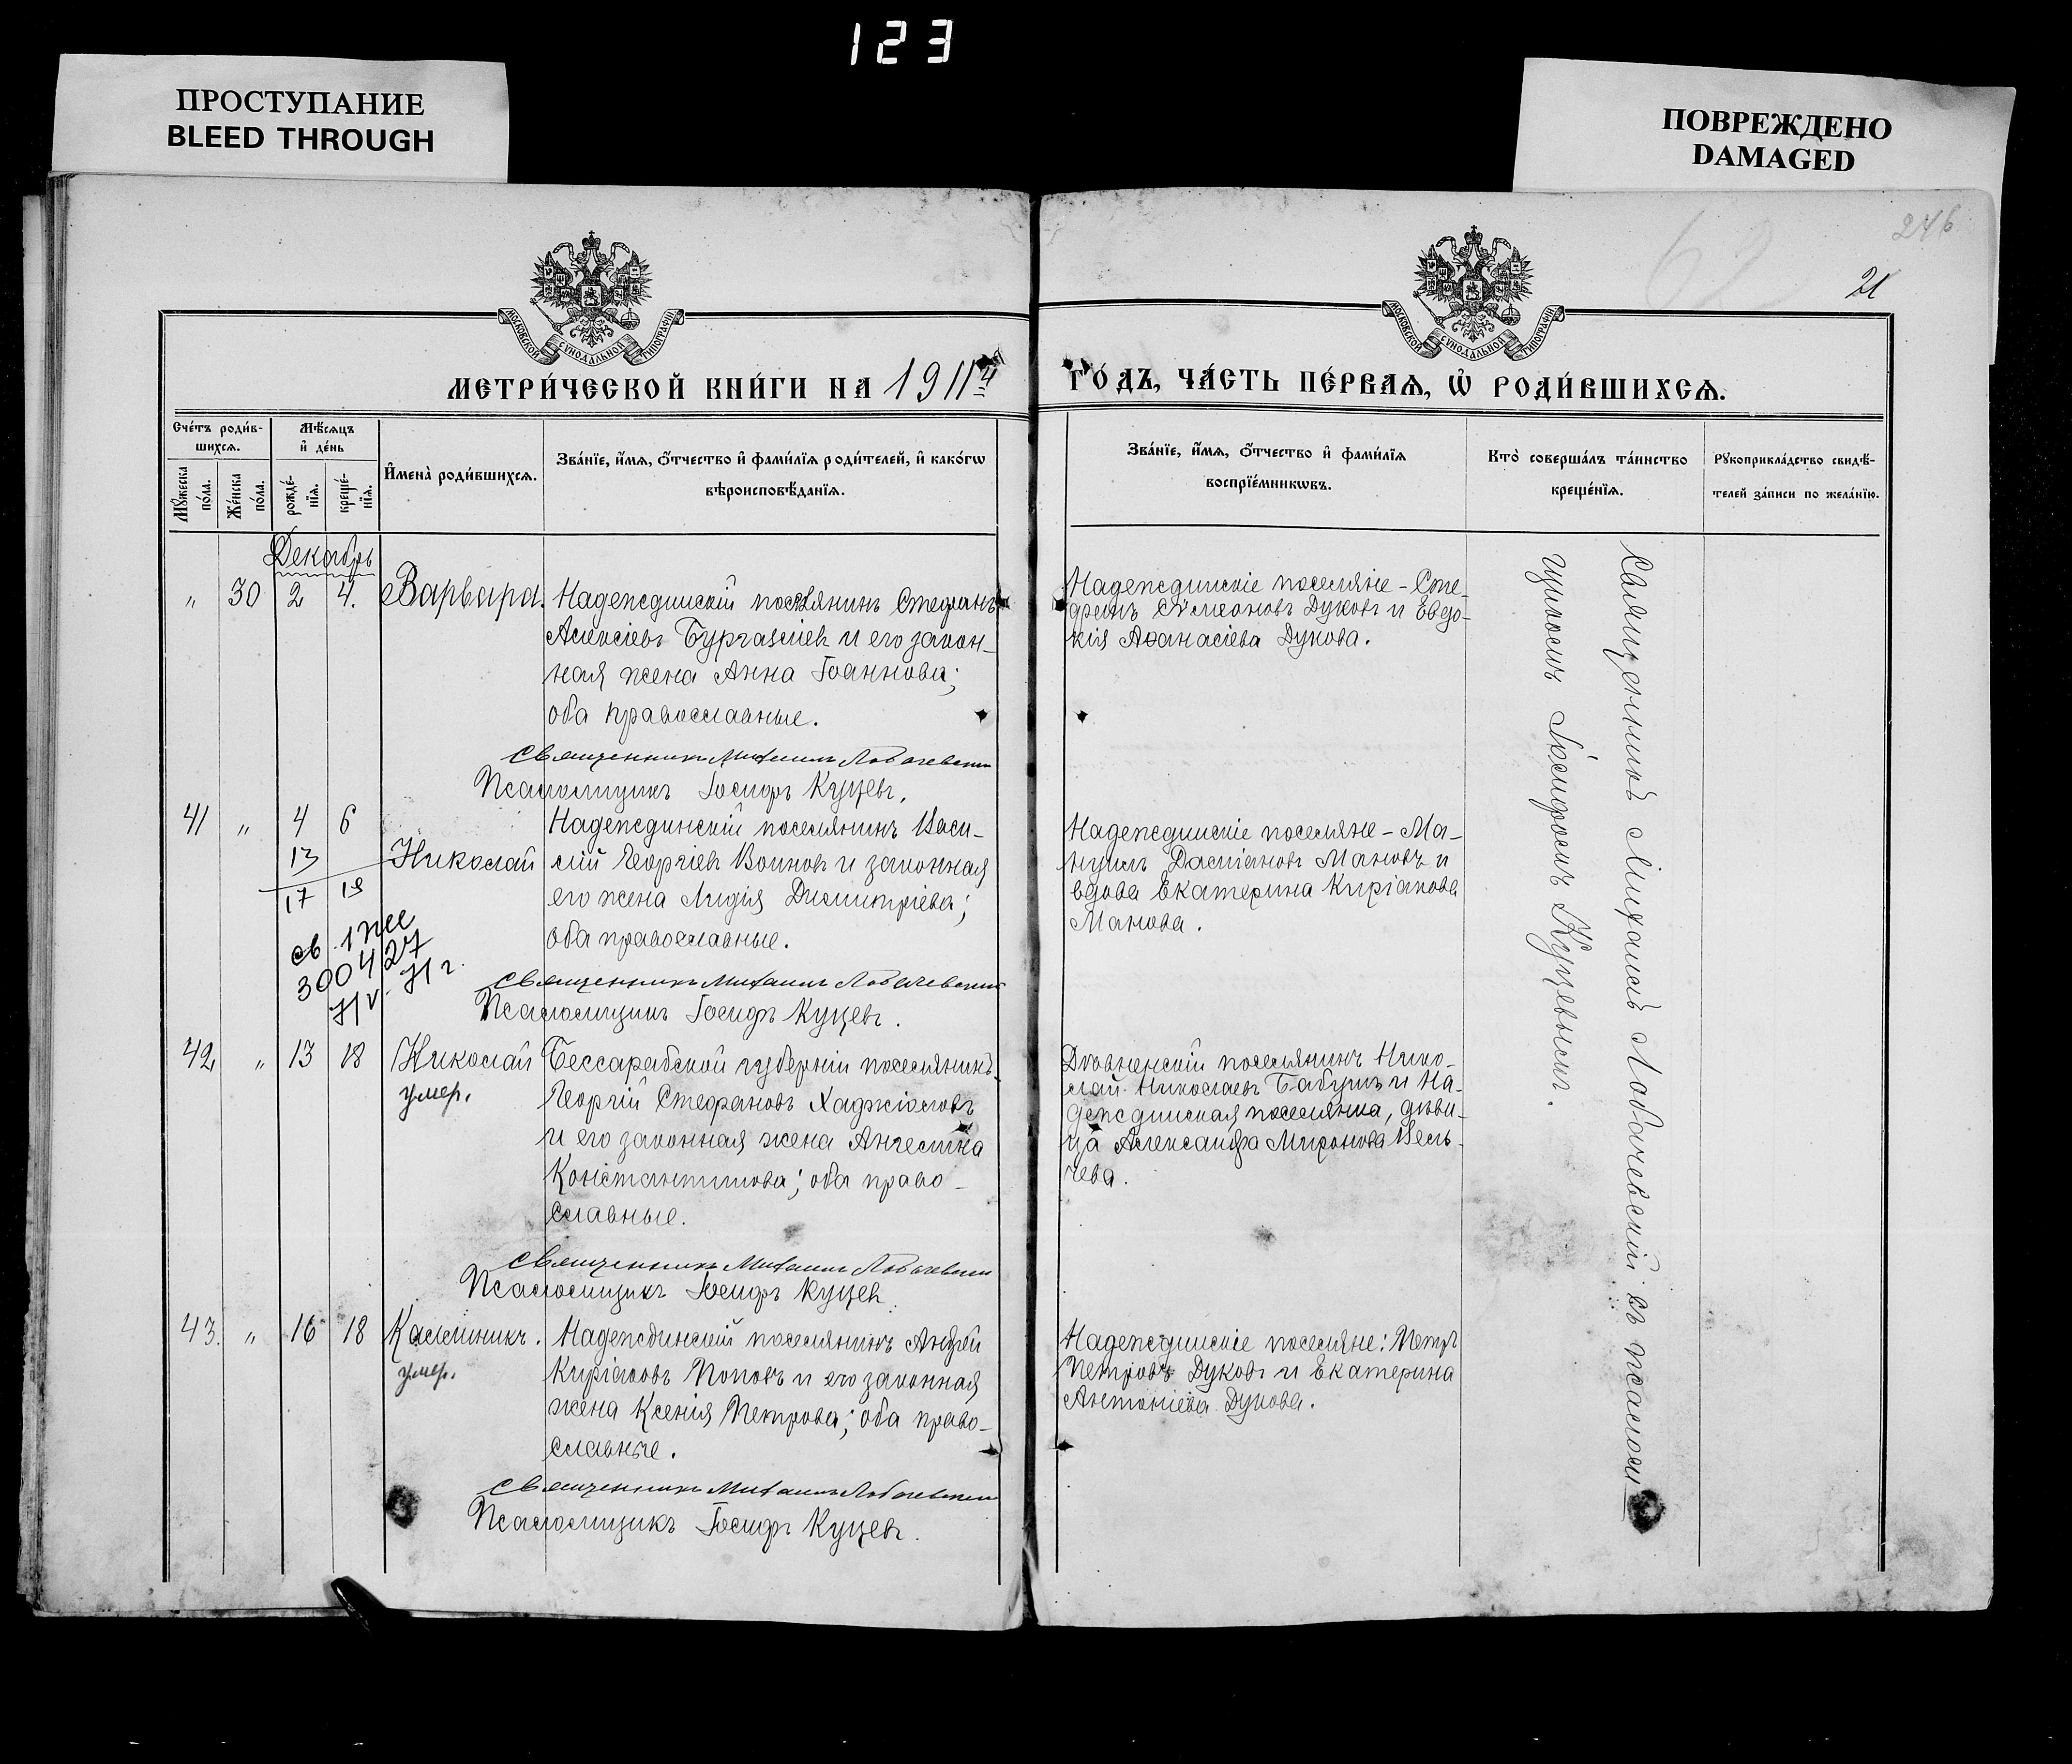 123
ПРОСТУПАНИЕ
BLEED THROUGH
ПОВРЕЖДЕНО
DAMAGED
246
62
21
МОСКОВСКОЙ СѴНОДАЛЬНОЙ ТИПОГРАФІИ
МОСКОВСКОЙ СѴНОДАЛЬНОЙ ТИПОГРАФІИ
МЕТРИ́ЧЕСКОЙ КНИ́ГИ НА 1911й
ГО́ДЪ, ЧА́СТЬ ПЕ́РВАѦ, Ѽ РОДИ́ВШИХСѦ.
Сче́тъ роди́в-
шихсѧ.
Мѣ́сѧцъ
и҆ де́нь
Мꙋ́жеска
по́ла.
Же́нска
по́ла.
рожде́-
нїѧ.
креще́-
нїѧ.
И҆мена̀ роди́вшихсѧ.
Зва́нїе, и҆́мѧ, ѻ҆́тчество и҆ фами́лїѧ роди́телей, и҆ како́гѡ
вѣроисповѣ́данїѧ.
Зва́нїе, и҆́мѧ, ѻ҆́тчество и҆ фами́лїѧ
воспрїе́мникѡвъ.
Кто̀ соверша́лъ та́инство
креще́нїѧ.
Рꙋкоприкла́дство свидѣ́-
телей за́писи по жела́нїю.
Декабрь
" 30 2 4. Варвара.
Надеждинскій поселянинъ Стефанъ
Алексіевъ Бургазліев и его закон-
ная жена Анна Іоаннова;
оба православные.
Священникъ Михаилъ Лобачевскій
Псаломщикъ Іосифъ Куцевъ.
Надеждинскіе поселяне - Сте-
фанъ Симеоновъ Дуковъ и Евдо-
кія Аѳанасіева Дукова.
41 " 4 6
13
17 19
Николай
Надеждинскій поселянинъ Васи-
лій Георгіев Воиновъ и законная
его жена Лидія Димитріева;
оба православные.
св
300427
Священникъ Михаилъ Лобачевскій
Псаломщикъ Іосифъ Куцевъ.
Надеждинскіе поселяне - Ма-
нуилъ Даміановъ Мановъ и
вдова Екатерина Киріакова
Манова.
42 " 13 18 Николай
умер.
Бессарабской губерніи поселянинъ
Георгій Стефановъ Хаджіоловъ
и его законная жена Ангелина
Константинова; оба право-
славные.
Священникъ Михаилъ Лобачевскій
Псаломщикъ Іосифъ Куцев.
поселянинъ Нико-
лай Николаевъ Бабулъ и На-
деждинская поселянка, дѣви-
ца Александра Миронова Вель-
чева.
43. " 16 18 Каллиникъ.
умер.
Надеждинскій поселянинъ Андрей
Киріаковъ Поповъ и его законная
жена Ксенія Петрова; оба право-
славные.
Священникъ Михаилъ Лобачевскій
Псаломщикъ Іосифъ Куцевъ.
Надеждинскіе поселяне: Петръ
Петровъ Дуковъ и Екатерина
Антоніева Дукова.
Священникъ Михаилъ Лобачевскій съ псалом-
щикомъ Іосифомъ Куцевымъ.